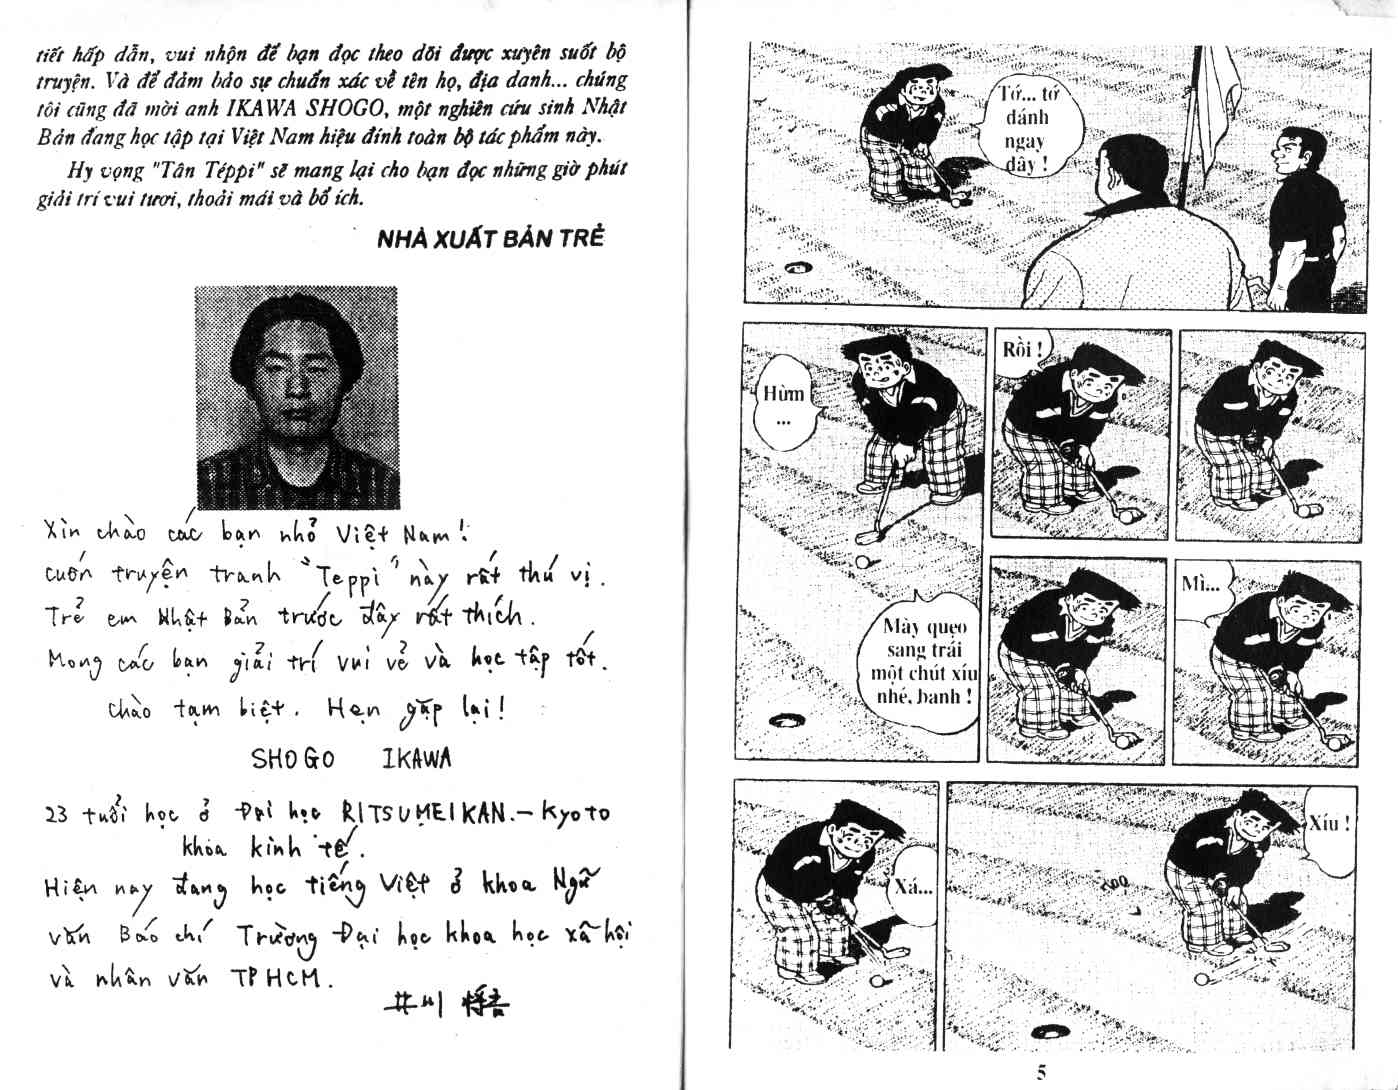 tiết hấp dẫn, vui nhộn để bạn đọc theo dõi được xuyên suốt bộ
truyện. Và để đảm bảo sự chuẩn xác về tên họ, địa danh... chúng
tôi cũng đã mời anh IKAWA SHOGO, một nghiên cứu sinh Nhật
Bản đang học tập tại Việt Nam hiệu đính toàn bộ tác phẩm này.
Hy vọng "Tân Téppi" sẽ mang lại cho bạn đọc những giờ phút
giải trí vui tươi, thoải mái và bổ ích.
NHÀ XUẤT BẢN TRẺ
Xìn chào các bạn nhỏ Việt Nam!
cuốn truyện tranh "Teppi" này rất thú vị.
Trẻ em Nhật Bản trước đây rất thích.
Mong các bạn giải trí vui vẻ và học tập tốt.
chào tạm biệt. Hẹn gặp lại!
SHOGO IKAWA
23 tuổi học ở Đại học RITSUMEIKAN.- Kyoto
khoa kinh tế.
Hiện nay đang học tiếng Việt ở khoa Ngữ
văn Báo chí Trường Đại học khoa học xã hội
và nhân văn TP HCM.
井川 将吾
Tớ... tớ
đánh
ngay
đây !
Hừm
...
Rồi !
Mày quẹo
sang trái
một chút xíu
nhé, banh !
Mì...
Xá...
Xíu !
5